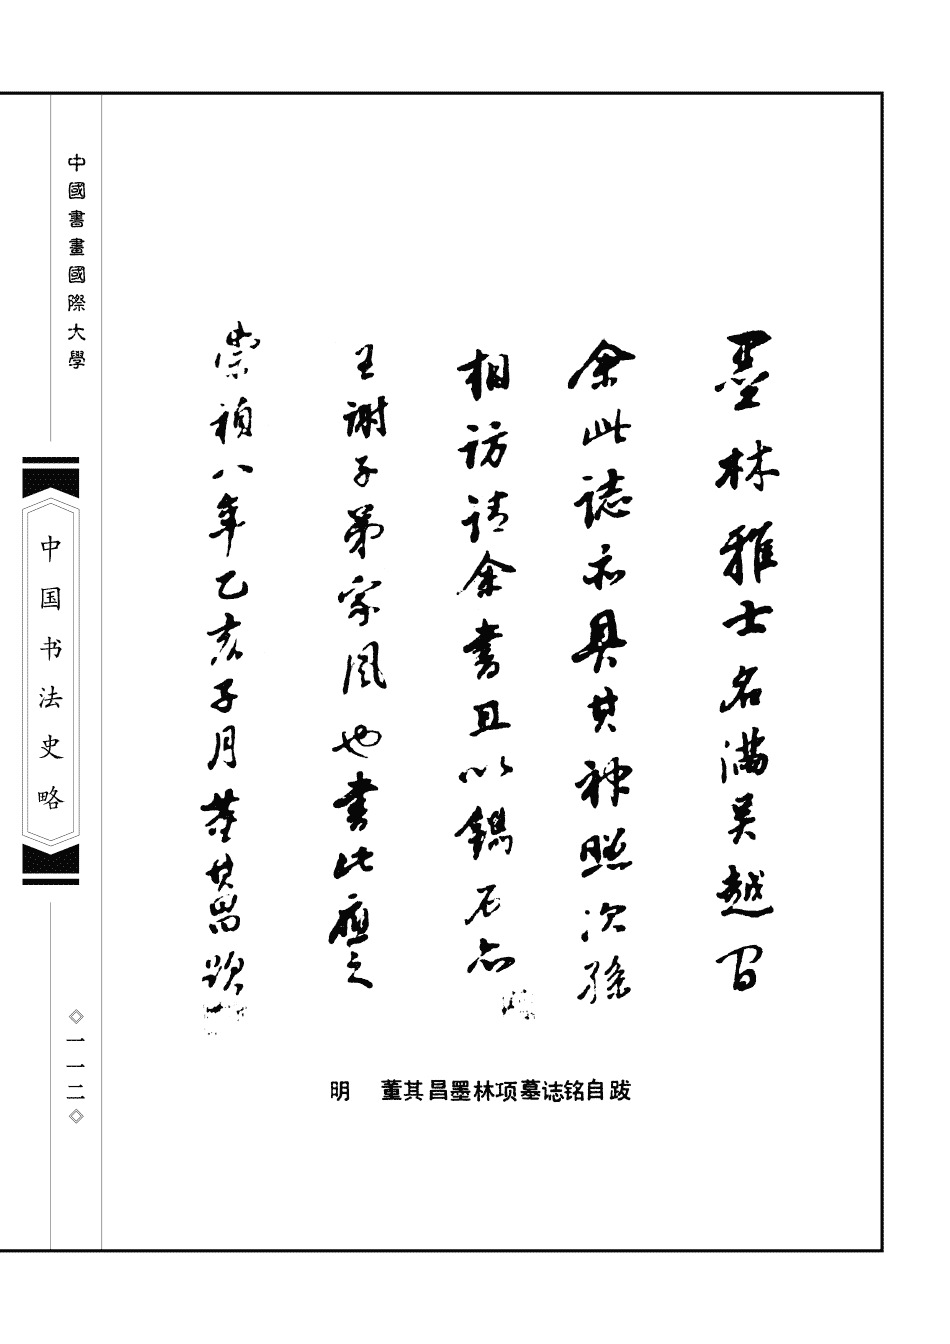 墨林雅士名滿吳越間
余此誌亦具其神照次孫
相訪请余書且以鐫石亦
王謝子弟家風也書此應之
崇禎八年乙亥子月董其昌跋
明 董其昌墨林项墓誌铭自跋
中國書畫國際大學
中国书法史略
一一二